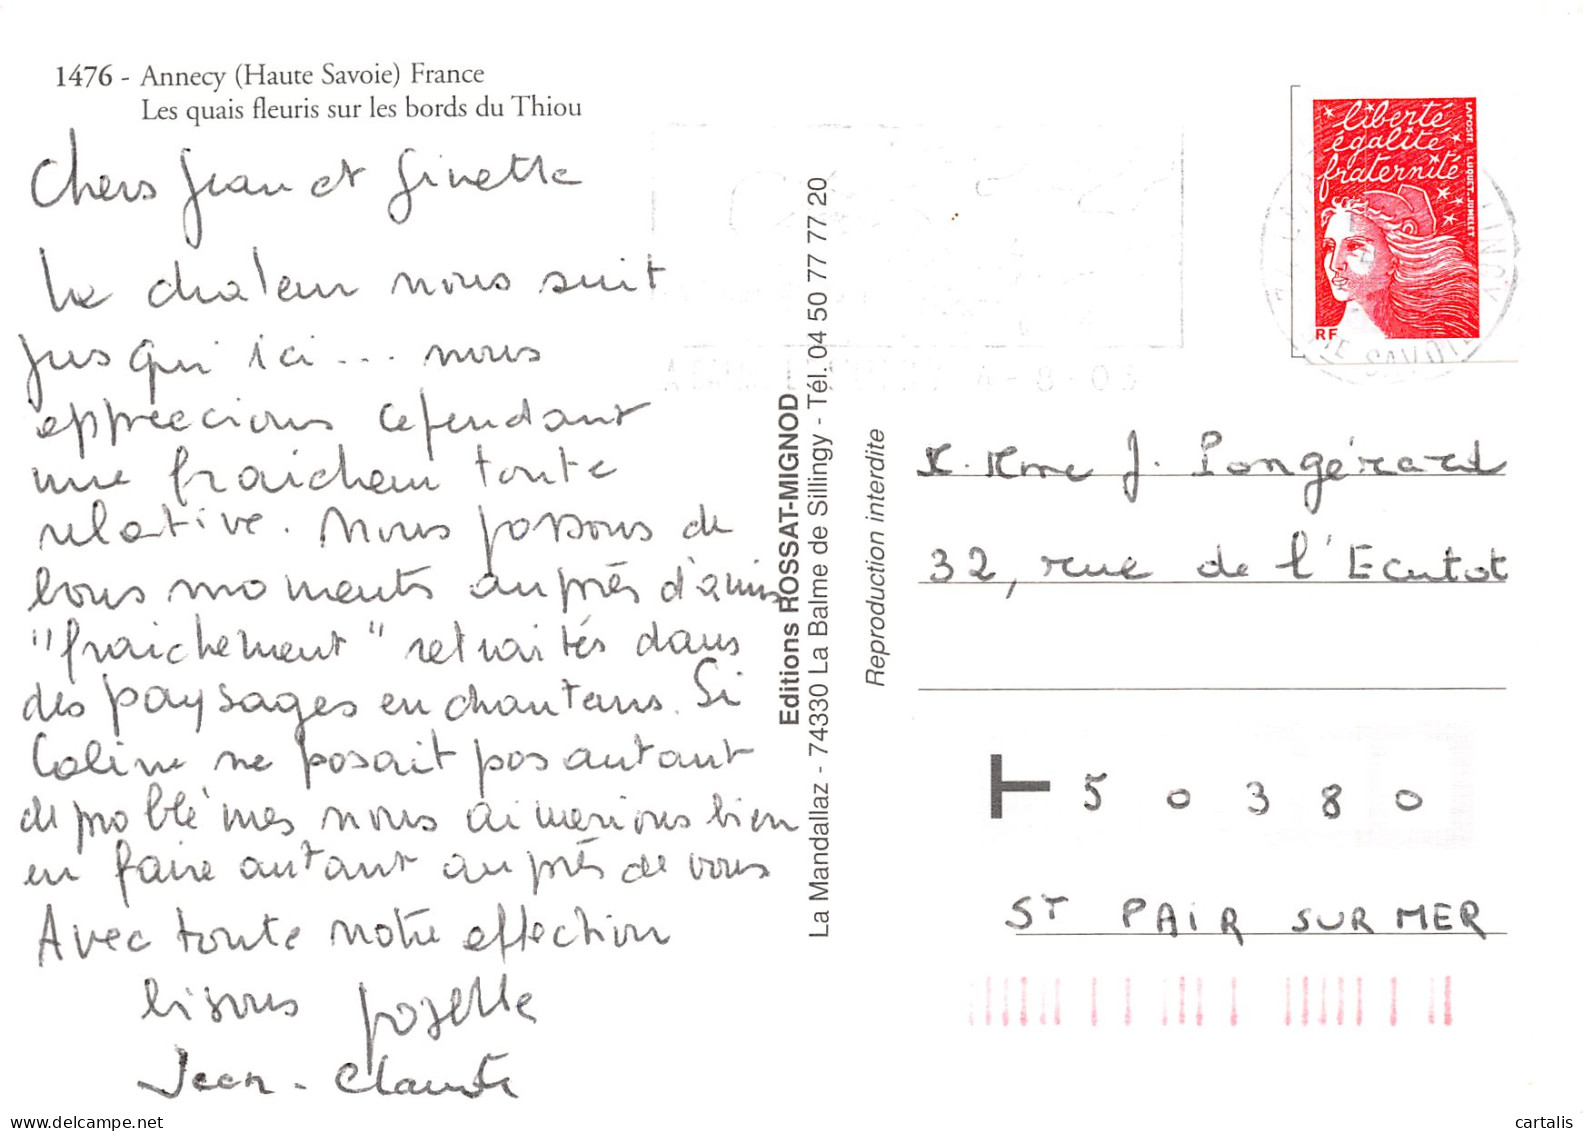 1476 - Annecy (Haute Savoie) France
Les quais fleuris sur les bords du Thiou
Chers Jean et Ginette
La chaleur nous suit
jusqu'ici... nous
apprécions cependant
une fraicheur toute
relative. Nous passons de
bons moments auprès d'amis
"fraichement" retraités dans
des paysages enchanteurs. Si
Coline ne posait pas autant
de problèmes nous aimerions bien
en faire autant auprès de vous
Avec toute notre affection
bisous Josette
Jean-Claude
Editions ROSSAT-MIGNOD
La Mandallaz - 74330 La Balme de Sillingy - Tél. 04 50 77 77 20
Reproduction interdite
liberté
égalité
fraternité
LA POSTE LUQUET-JUMELET
RF
4-8-03
SAVOIE
M. Mme J. Pongérard
32, rue de l'Ecutot
50380
ST PAIR SUR MER
delcampe.net
cartalis